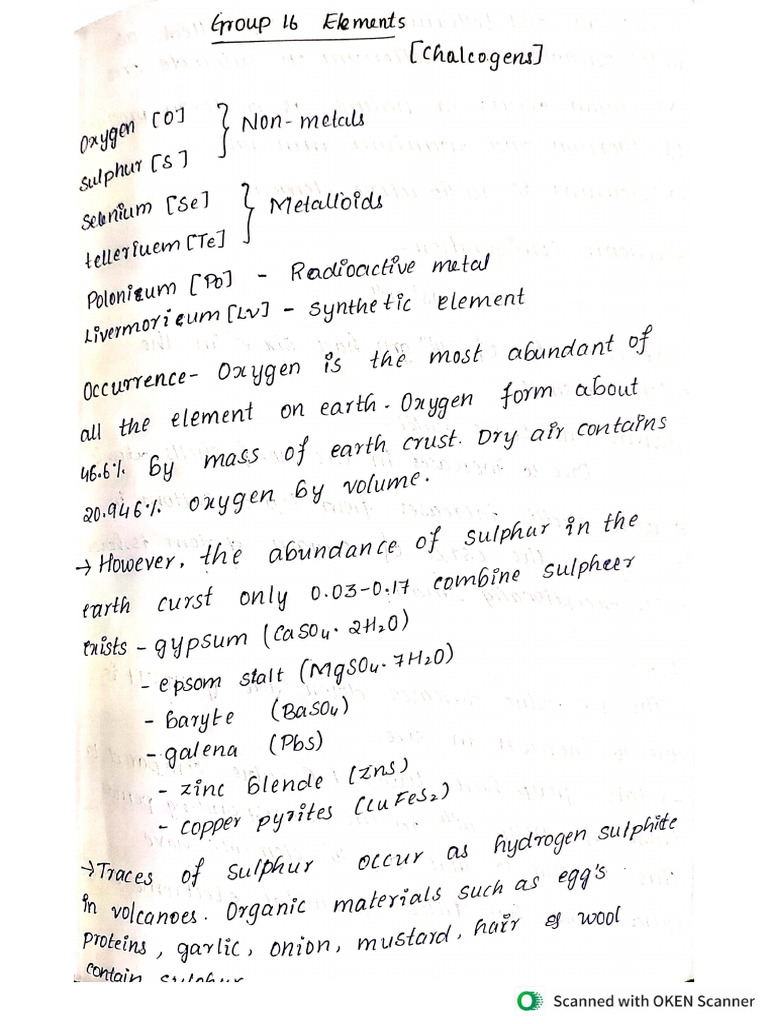 Group 16 Elements
[Chalcogens]
Oxygen [O] } Non-metals
Sulphur [S]
Selenium [Se] } Metalloids
telleriuem [Te]
Polonium [Po] - Radioactive metal
Livermorieum [Lv] - Synthetic element
Occurrence- Oxygen is the most abundant of
all the element on earth. Oxygen form about
46.6% by mass of earth crust. Dry air contains
20.946% oxygen by volume.
→ However, the abundance of sulphur in the
earth curst only 0.03-0.17 combine sulpheer
exists - gypsum (CaSO4. 2H2O)
- epsom stalt (MgSO4. 7H2O)
- baryte (BaSO4)
- galena (Pbs)
- zinc blende (Zns)
- copper pyrites (CuFeS2)
→ Traces of sulphur occur as hydrogen sulphite
in volcanoes. Organic materials such as egg's
proteins, garlic, onion, mustard, hair & wool
contain sulphur
Scanned with OKEN Scanner